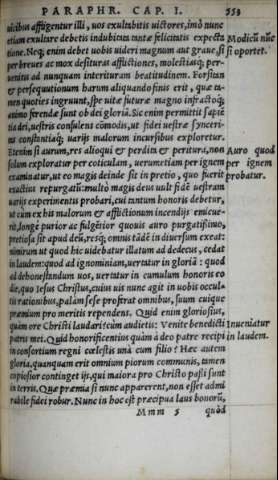 PARAPHR. CAP. I. 553
uicibus affligentur illi, uos exultabitis uictores, imò nunc
etiam exultare debetis indubitata tantæ felicitatis expecta Modicū nūc
tione. Neq; enim debet uobis uideri magnum aut graue, si si oportet.
per breues ac mox desituras afflictiones, molestiasq; per-
uenitis ad nunquam interituram beatitudinem. Forsitan
& persequutionum harum aliquando finis erit, quæ ta-
men quoties ingruunt, spe uitæ futuræ magno infractoq;
animo ferendæ sunt ob dei gloriā. Sic enim permittit sapiē
tia dei, uestris consulens cōmodis, ut fidei uestræ synceri-
tas constantiaq; uarijs malorum incursibus exploretur.
Etenim si aurum, res alioqui & perdita & peritura, non Auro quod
solum exploratur per coticulam, uerumetiam per ignem per ignem
examinatur, ut eo magis deinde sit in pretio, quo fuerit probatur.
exactius repurgatū: multò magis deus uult fidē uestram
uarijs experimentis probari, cui tantum honoris debetur,
ut cum ex his malorum & afflictionum incendijs emicue-
rit, longè purior ac fulgētior quouis auro purgatissimo,
pretiosa sit apud deū, resq; omnis tādē in diuersum exeat:
nimirum ut quod hic uidebatur illatum ad dedecus, cedat
in laudem: quod ad ignominiam, uertatur in gloriā: quod
ad dehonestandum uos, uertatur in cumulum honoris eo
die, quo Iesus Christus, cuius uis nunc agit in uobis occul-
tis rationibus, palàm sese proferat omnibus, suum cuique
præmium pro meritis rependens. Quid enim gloriosius,
quàm ore Christi laudari? cùm audietis: Venite benedicti Inueniatur
patris mei. Quid honorificentius quàm à deo patre recipi in laudem.
in consortium regni cœlestis unà cum filio? Hæc autem
gloria, quanquam erit omnium piorum communis, tamen
copiosior continget ijs, qui maiora pro Christo passi sunt
in terris. Quæ præmia si nunc apparerent, non esset admi
rabile fidei robur. Nunc in hoc est præcipua laus bonorū,
Mmm 5 quòd